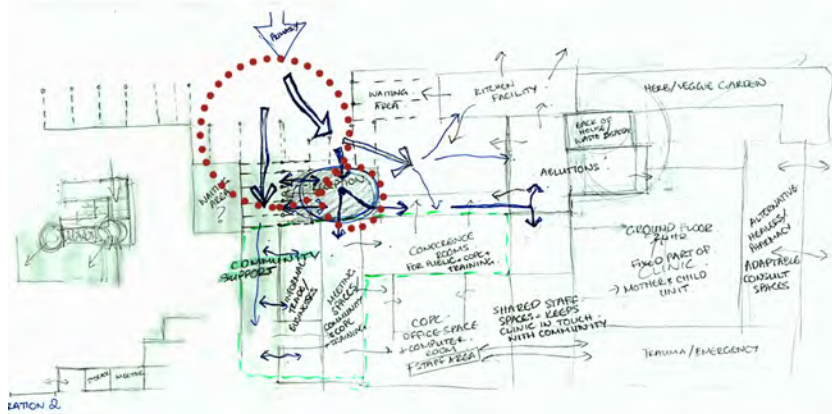 PRIMARY
WAITING
AREA
KITCHEN
FACILITY
HERB/VEGGIE GARDEN
BACK OF
HOUSE
ABLUTIONS
WAITING
AREA
?
COMMUNITY
SUPPORT
INFORMAL
TRADE/
BUSINESS
MEETING
SPACES
COMMUNITY
& COPC
TRAINING
CONFERENCE
ROOMS
FOR PUBLIC + COPC +
TRAINING.
COPC
OFFICE SPACE
+ COMPUTER
ROOM
STAFF AREA
SHARED STAFF
SPACES - KEEPS
CLINIC IN TOUCH
WITH COMMUNITY
GROUND FLOOR
24HR
FIXED PART OF
CLINIC
MOTHER & CHILD
UNIT
ALTERNATIVE
HEALERS/
PHARMACY
ADAPTABLE
CONSULT
SPACES
TRAUMA/EMERGENCY
MEETING
RATION 2